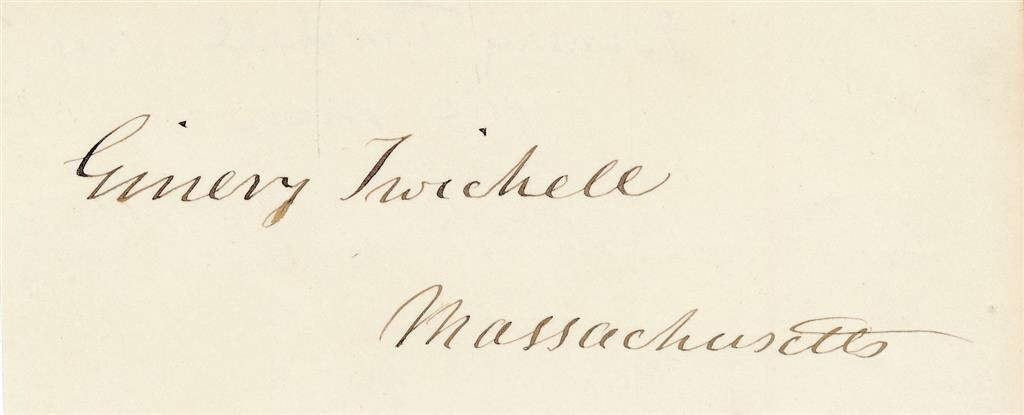 Ginery Twichell
Massachusetts